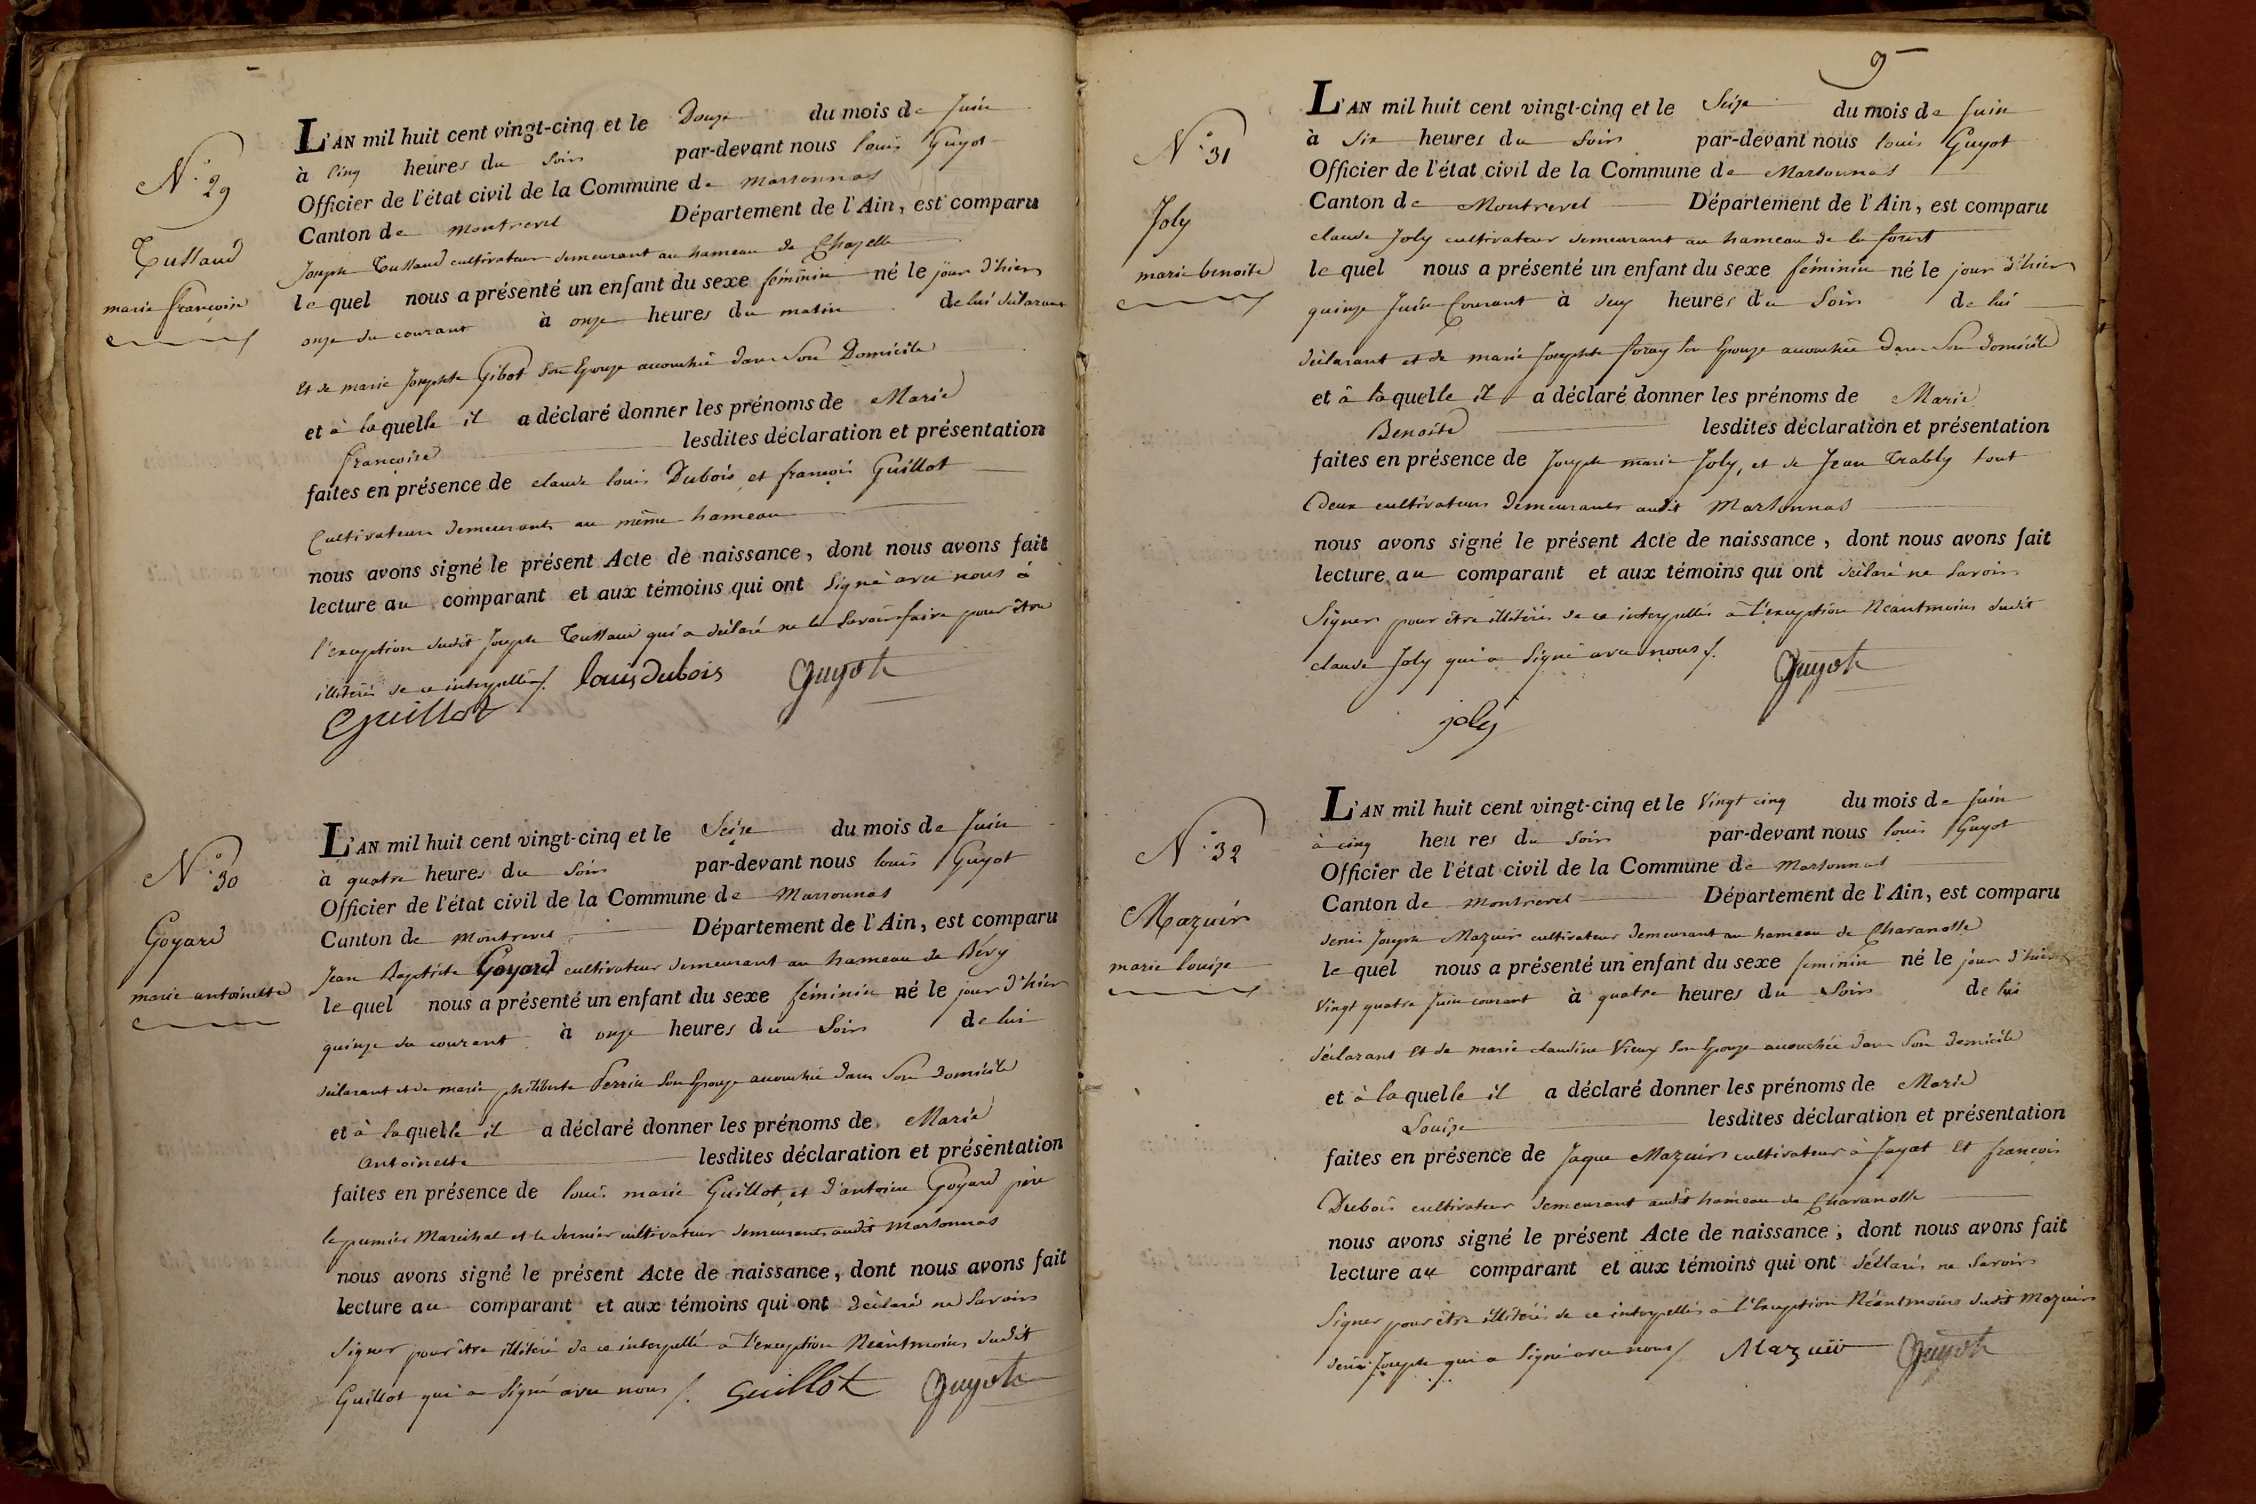 N.° 29
Tussaud
marie françoise
L'AN mil huit cent vingt-cinq et le Douze du mois de Juin
à Cinq heures du Soir par-devant nous louis Guyot
Officier de l'état civil de la Commune de marsonnas
Canton de montrevel Département de l'Ain, est comparu
Joseph Tussaud cultivateur demeurant au hameau de Chazelle
lequel nous a présenté un enfant du sexe féminin né le jour d'hier
onze du courant à onze heures du matin de lui déclarant
et de marie Josephte Gibot son Epouze accouchée dans son Domicile
et à laquelle il a déclaré donner les prénoms de Marie
françoise lesdites déclaration et présentation
faites en présence de claude louis Dubois et françois Guillot
Cultivateurs demeurants au même hameau
nous avons signé le présent Acte de naissance, dont nous avons fait
lecture au comparant et aux témoins qui ont signé avec nous à
l'exception dudit Joseph Tussaud qui a déclaré ne le savoir faire pour être
illitéré de ce interpellé /. louis dubois Guyot
Guillot
N.° 30
Goyard
marie antoinette
L'AN mil huit cent vingt-cinq et le Seize du mois de Juin
à quatre heures du soir par-devant nous louis Guyot
Officier de l'état civil de la Commune de Marsonnas
Canton de Montrevel Département de l'Ain, est comparu
Jean Baptiste Goyard cultivateur demeurant au hameau de Bévy
lequel nous a présenté un enfant du sexe féminin né le jour d'hier
quinze du courant à onze heures du Soir de lui
déclarant et de marie philiberte Perrin son Epouze accouchée dans son domicile
et à laquelle il a déclaré donner les prénoms de Marie
Antoinette lesdites déclaration et présentation
faites en présence de louis marie Guillot, et d'antoine Goyard père
le premier Maréchal et le dernier cultivateur demeurants audit Marsonnas
nous avons signé le présent Acte de naissance, dont nous avons fait
lecture au comparant et aux témoins qui ont déclaré ne Savoir
signer pour être illitéré de ce interpellé à l'exception Néantmoins dudit
Guillot qui a signé avec nous /. Guillot Guyot
9
N.° 31
Joly
marie benoite
L'AN mil huit cent vingt-cinq et le Seize du mois de Juin
à Six heures du Soir par-devant nous louis Guyot
Officier de l'état civil de la Commune de Marsonnas
Canton de Montrevel Département de l'Ain, est comparu
claude Joly cultivateur demeurant au hameau de la forêt
lequel nous a présenté un enfant du sexe féminin né le jour d'hier
quinze Juin Courant à deux heures du Soir de lui
déclarant et de marie Josephte foray son Epouze accouchée dans son domicile
et à laquelle il a déclaré donner les prénoms de Marie
Benoite lesdites déclaration et présentation
faites en présence de Joseph marie Joly, et de Jean Trably tout
Deux cultivateurs demeurants audit Marsonnas
nous avons signé le présent Acte de naissance, dont nous avons fait
lecture au comparant et aux témoins qui ont déclaré ne Savoir
Signer pour être illitérés de ce interpellés à l'exception Néantmoins dudit
claude Joly qui a Signé avec nous /. Guyot
joly
N.° 32
Mazuir
marie louize
L'AN mil huit cent vingt-cinq et le Vingt cinq du mois de Juin
à cinq heures du soir par-devant nous louis Guyot
Officier de l'état civil de la Commune de Marsonnas
Canton de montrevel Département de l'Ain, est comparu
denis Joseph Mazuir cultivateur demeurant au hameau de Charanolle
lequel nous a présenté un enfant du sexe feminin né le jour d'hier
Vingt quatre Juin courant à quatre heures du Soir de lui
déclarant et de marie claudine Vieux son Epouze accouchée dans son domicile
et à laquelle il a déclaré donner les prénoms de Marie
Louize lesdites déclaration et présentation
faites en présence de Jaque Mazuir cultivateur à Jayat et françois
Dubois cultivateur demeurant audit hameau de Charanolle
nous avons signé le présent Acte de naissance, dont nous avons fait
lecture au comparant et aux témoins qui ont déclaré ne Savoir
Signer pour être illitérés de ce interpellés à l'Exception Néantmoins dudit Mazuir
denis Joseph qui a Signé avec nous / Mazuir Guyot